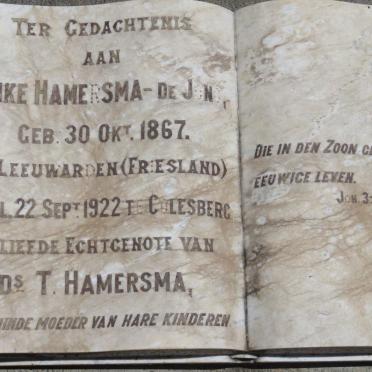 TER GEDACHTENIS
AAN
NKE HAMERSMA-DE JONG
GEB. 30 OKT. 1867.
LEEUWARDEN (FRIESLAND)
L. 22 SEPT 1922 TE COLESBERG
LIEFDE ECHTGENOTE VAN
DS T. HAMERSMA,
INDE MOEDER VAN HARE KINDEREN
DIE IN DEN ZOON GE
EEUWIGE LEVEN.
JOH. 3: